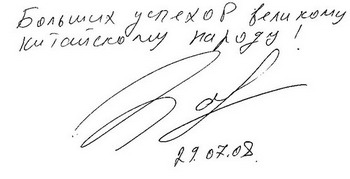 Больших успехов великому
китайскому народу!
29.07.08.